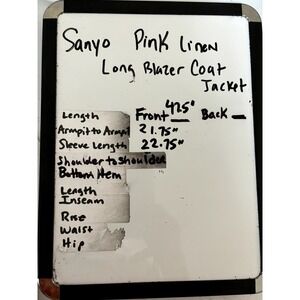 Sanyo Pink Linen
Long Blazer Coat
Jacket
Length Front 42.5" Back
Armpit to Armpit 21.75"
Sleeve Length 22.75"
Shoulder to shoulder
Bottom Hem
Length
Inseam
Rise
Waist
Hip